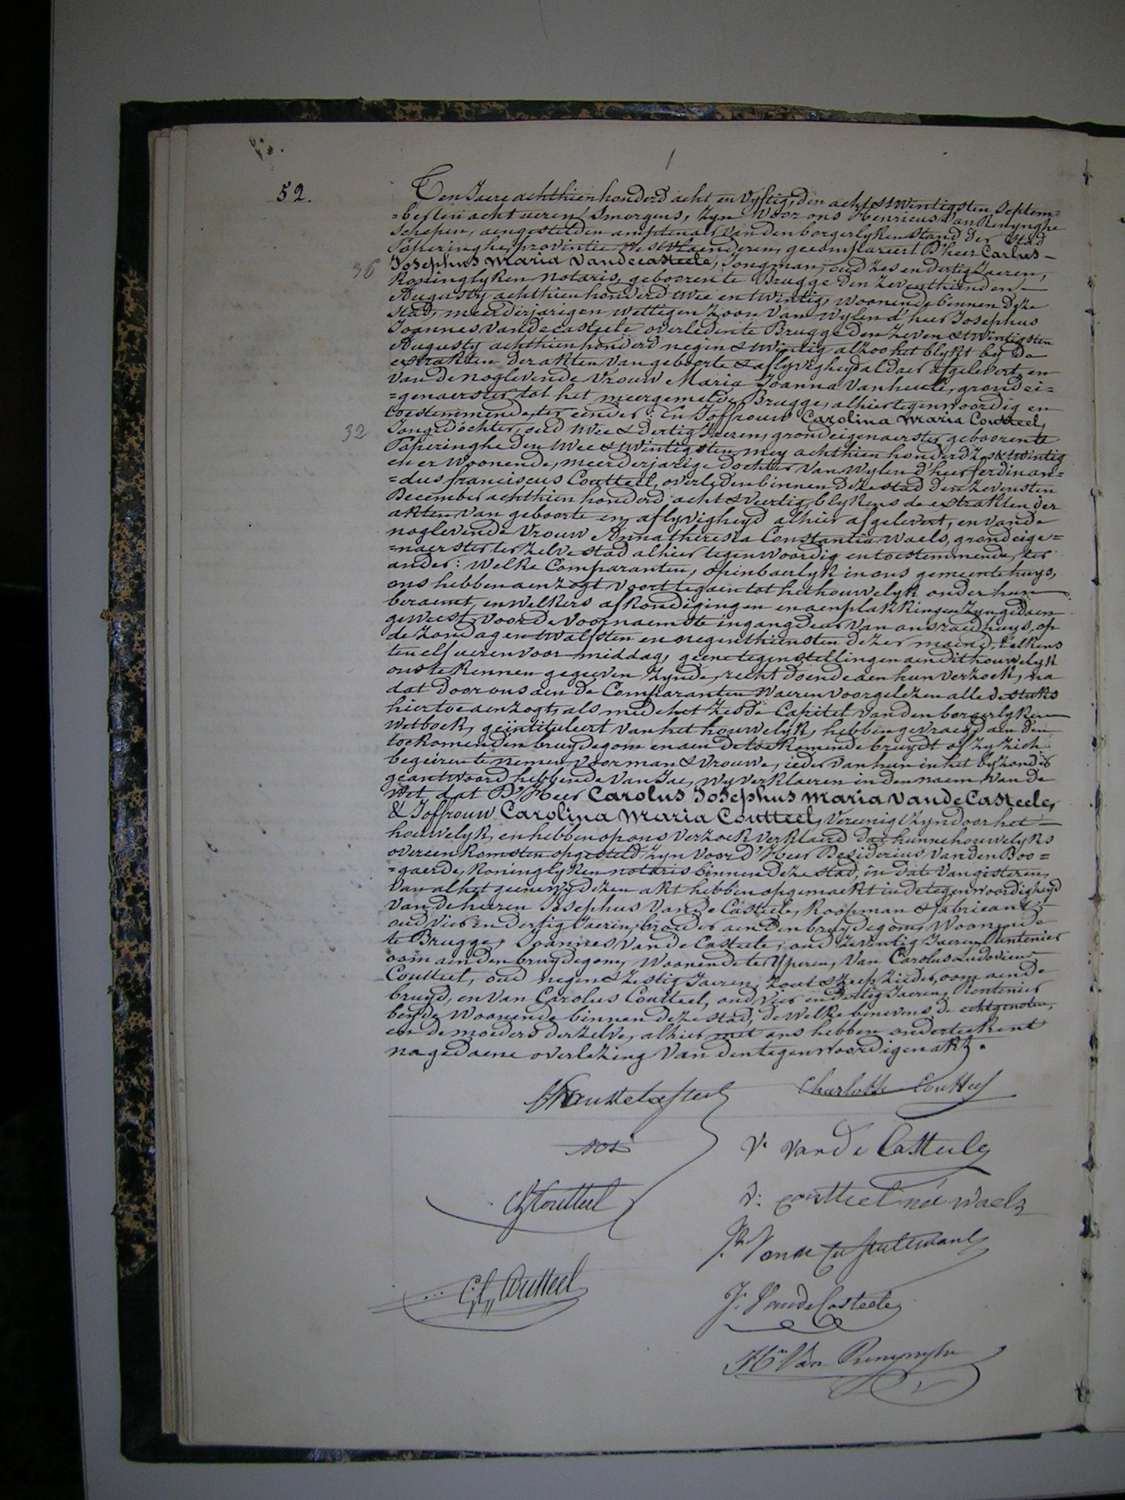 52.
Ten Jaere achthien honderd acht en vyftig, den acht & twintigsten Septem=
=ber ten acht ueren 'smorgens, zyn voor ons Henricus Van Renynghe
Schepen, aengestelden amptenaer van den borgerlyken stand der stad
Poperinghe, provintie Westvlaenderen, gecompareert D'heer Carlus
36 Josephus Maria Vandecasteele, Jongman, oud zes en dertig Jaeren,
Koninglyken notaris, geboren te Brugge den zeventhienden
Augusty achthien honderd twee en twintig, woonende binnen deze
stad, meerderjaerigen wettigen zoon van wylen d'heer Josephus
Joannes Vandecasteele overleden te Brugge den zeven & twintigsten
Augusty achthien honderd negen & twintig alzoo het blykt by de
extrakten der akten van geboorte & aflyvigheyd aldaer afgelevert, en
van de noglevende Vrouw Maria Joanna Vanheule, grondei=
=genaerster tot het meergemelde Brugge, alhier tegenwoordig en
toestemmende, ter eender: En Joffrouw Carolina Maria Coutteel,
32 Jonge dochter, oud twee & dertig Jaeren, grondeigenaerster, geboren te
Poperinghe den twee & twintigsten mey achthien honderd zes & twintig
en er woonende, meerderjarige dochter van wylen d'heer ferdinan=
=dus franciscus Coutteel, overleden binnen deze stad den zevensten
December achthien honderd acht & veertig, blykens de extrakten der
akten van geboorte en aflyvigheyd alhier afgelevert, en van de
noglevende Vrouw Anna theresia Constantia Waels, grondeige=
=naerster ter zelve stad alhier tegenwoordig en toestemmende, ter
ander: Welke Comparanten, openbaerlyk in ons gemeentehuys,
ons hebben aenzogt voort te gaen tot het houwelyk onder hun
beraemt, en welkers afkondigingen en aenplakkingen zyn gedaen
geweest voor de voornaemste ingang deur van ons raedhuys, op
de zondagen twalfsten en negenthiensten dezer maend, telkens
ten elf ueren voor middag, geene tegenstellingen aen dit houwelyk
ons te kennen gegeven zynde, recht doende aen hun verzoek, na
dat door ons aen de Comparanten waeren voorgelezen alle de stuks
hier toe aenzogt, als mede het zesde Capitel van den borgerlyken
wetboek, geïntituleert van het houwelyk, hebben gevraegd aen den
toekomenden bruydegom en aen de toekomende bruydt of zy zich
begeiren te nemen voor man & vrouwe, ieder van hun in het byzonder
geantwoord hebbende van Ja, wy verklaeren in den naem van de
Wet dat D'Heer Carolus Josephus Maria Vande Casteele,
& Joffrouw Carolina Maria Coutteel, vereenigt zyn door het
houwelyk, en hebben op ons verzoek verklaerd dat hunne houwelyks
overeenkomsten opgesteld zyn voor d'Heer Desiderius Vanden Boo=
=gaerde, koninglyken notaris binnen deze stad, in date van gisteren,
Van al het geene wy dezen akt hebben opgemaekt in de tegenwoordigheyd
van de heeren Josephus Van de Casteele, koopman & fabricant
oud vier en dertig Jaeren, broeder aen den bruydegom, woonende
te Brugge, Joannes Van de Casteele, oud zeventig Jaeren, rentenier
oom aen den bruydegom, woonende te Yperen, Van Carolus Ludovicus
Coutteel, oud negen & zestig Jaeren, zout & zeep zieder, oom aen de
bruyd, en van Carolus Coutteel, oud vier en Jaeren, rentenier
beede woonende binnen deze stad, de welke benevens de echtgenoten,
en de moeders derzelve, alhier met ons hebben onderteekent
na gedaene overlezing van den tegenwoordigen akt.
Charlotte Coutteel
nots V. van de Casteele
Ch. Coutteel d. Coutteel née Waels
C. L. Coutteel
J. VandeCasteele
Hri Van Renynghe